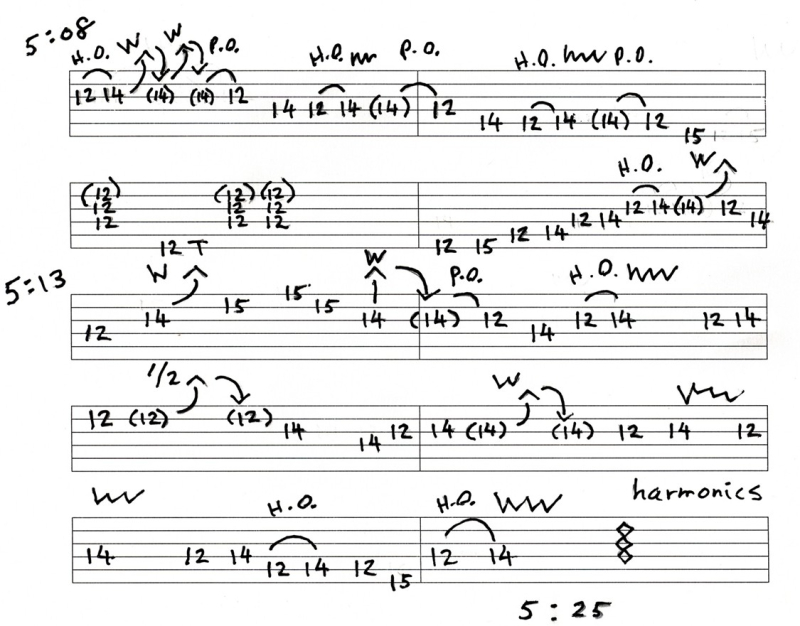 5:08
H.O. W W P.O. H.O. P.O. H.O. P.O.
12 14 (14) (14) 12 14 12 14 (14) 12 14 12 14 (14) 12 15
H.O. W
(12) (12) (12) 12 14 (14) 12 14
12 12 12 12 14
12 12 12 12 14
12 T 12 15
5:13
W W P.O. H.O.
12 14 15 15 15 14 (14) 12 14 12 14 12 14
1/2 W
12 (12) (12) 14 14 12 14 (14) (14) 12 14 12
H.O. H.O. harmonics
14 12 14 12 14 12 15 12 14
5:25